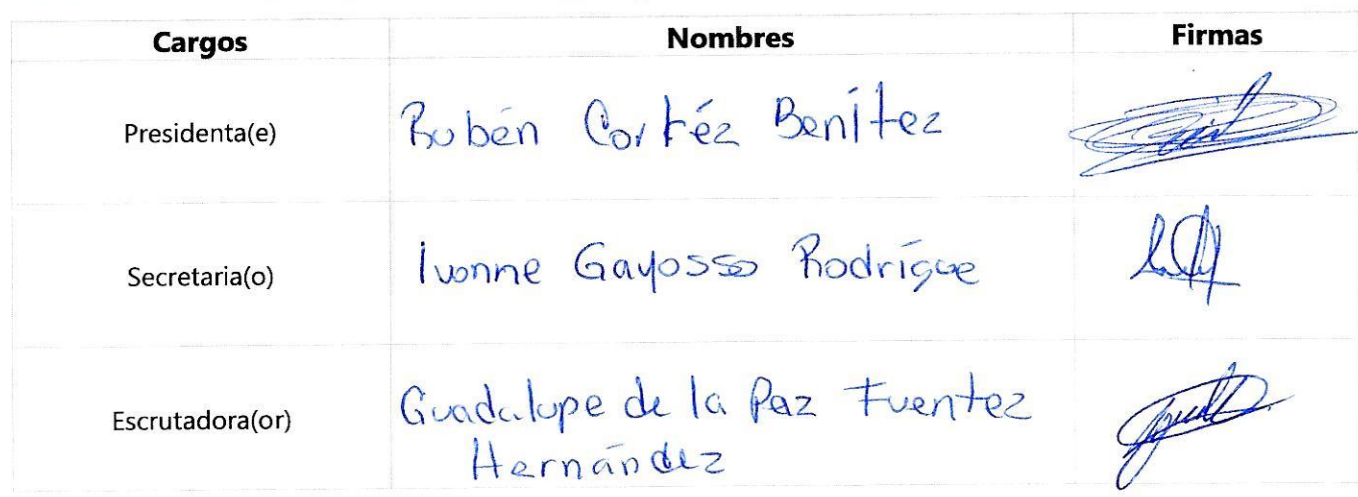 Cargos Nombres Firmas
Presidenta(e) Rubén Cortéz Benítez
Secretaria(o) Ivonne Gayosso Rodrígue
Escrutadora(or) Guadalupe de la Paz Fuentez
Hernández